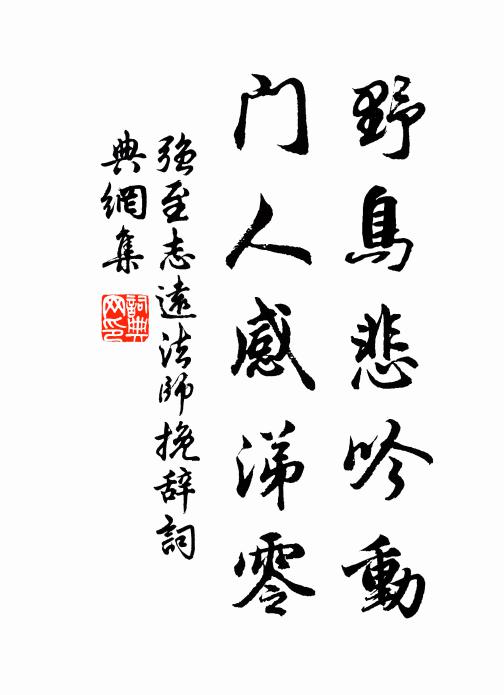 野鳥悲吟動
門人感涕零
強至志遠法師挽辞詞
典網集
詞典网印